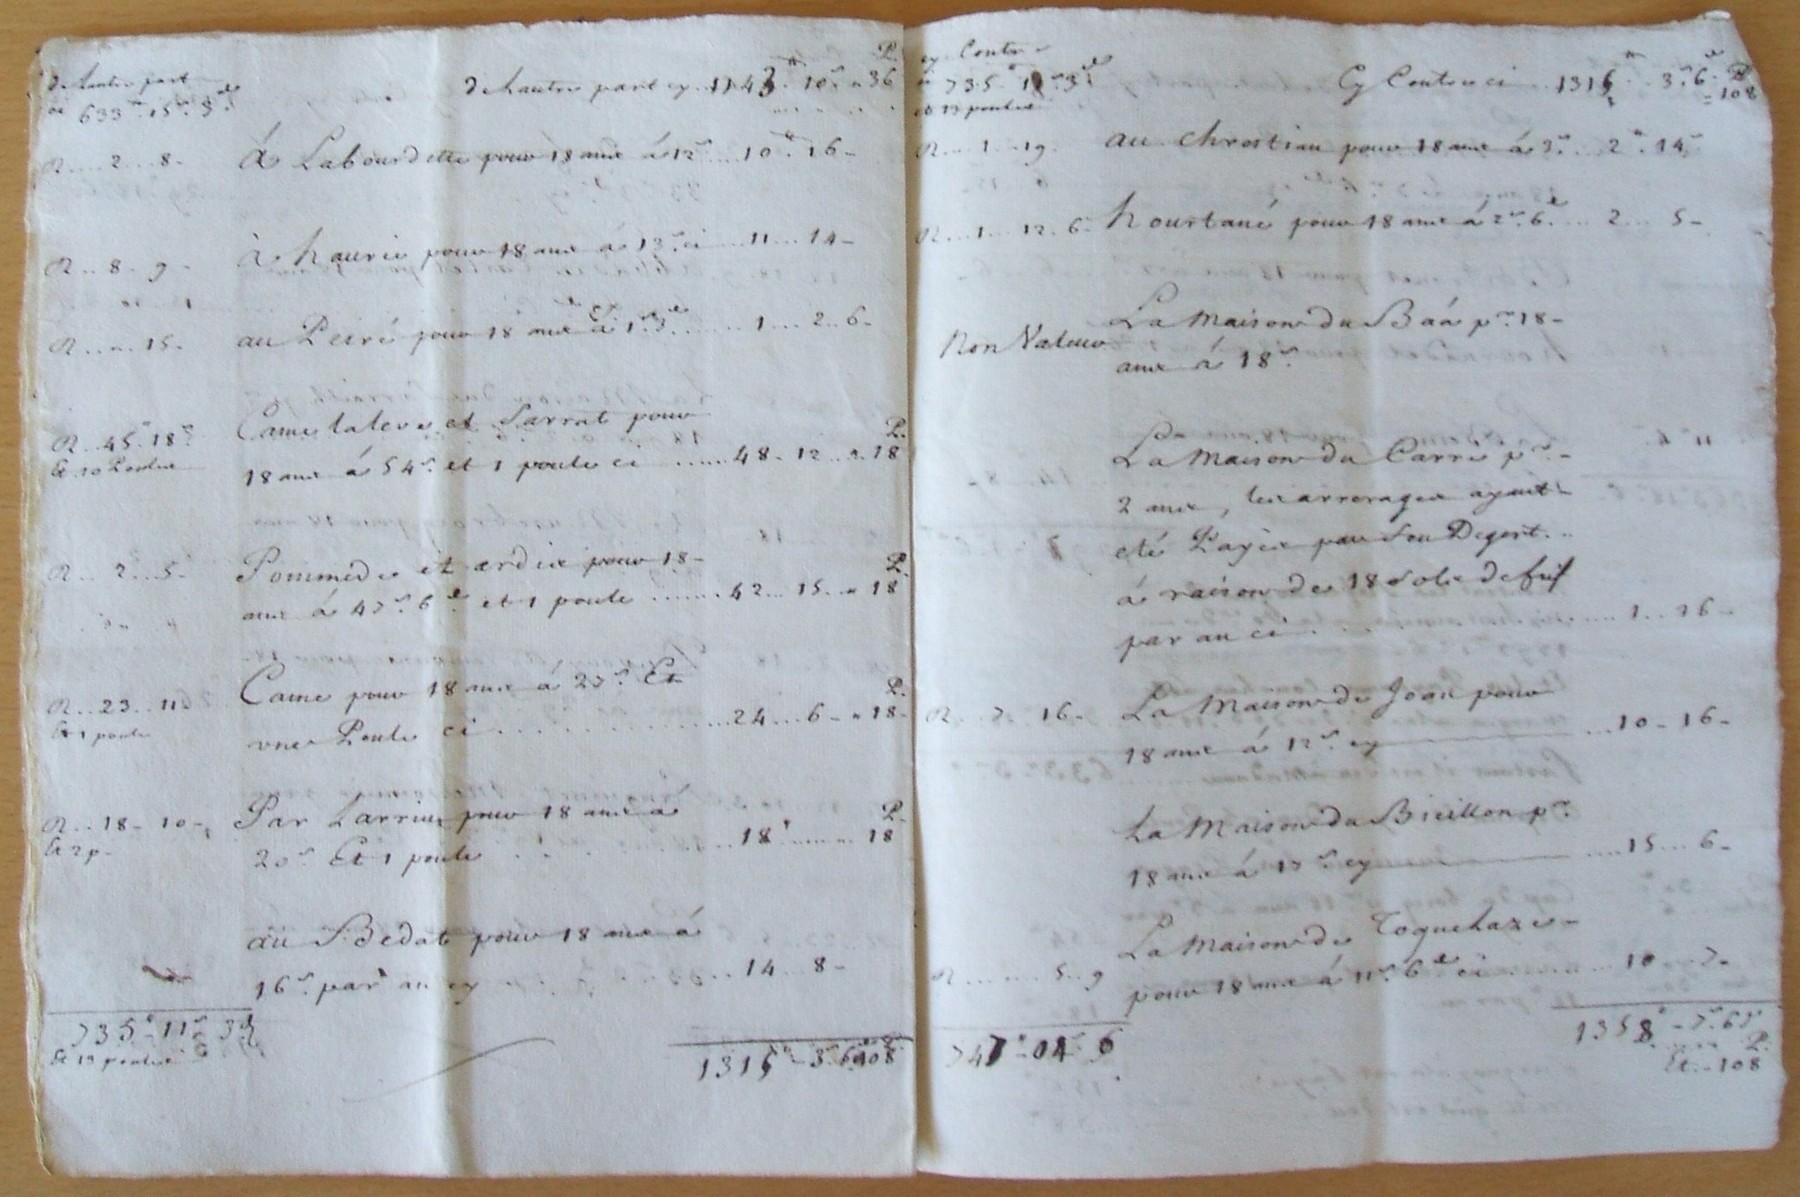 de hautre part
ci 633# 15s 3d
de hautre part cy 1143# 10s " 36 P.
R.. 2.. 8-
à Labourdette pour 18 ans à 12s .... 10# 16-
R.. 8- 9-
à haurie pour 18 ans à 13s ci .... 11... 14-
R.. " 15-
au Peiré pour 18 ans à 1s 3d .... 1... 2.. 6-
R.. 45# 18s
Et 10 Poules
Camelalere et Sarrat pour
18 ans à 54s et 1 poule ci ..... 48- 12.. " 18 P.
R.. 2.. 5-
Pommede et ardie pour 18-
ans à 47s 6d et 1 poule ...... 42... 15.. " 18 P.
R.. 23.. 11
Et 1 poule
Came pour 18 ans à 27s Et
une Poule ci .......... 24... 6- " 18- P.
R.. 18- 10-
Et 2 p-
Par Larriu pour 18 ans à
20s Et 1 poule .... 18# .... " 18 P.
au Bedat pour 18 ans à
16s par an cy .... 14... 8-
735# 11s 3d
Et 13 poules
1315# 3s 6d 108 P.
cy Contre
ci 735# 11s 3d
et 13 poules
Cy Contre ci .. 1315# 3s 6d P. 108
R... 1.. 19-
au Chrestiaa pour 18 ans à 3s ... 2# 14s
R... 1... 12. 6-
hourtané pour 18 ans à 2s 6d ... 2... 5-
Non Valeur
La Maison du Baá pr 18-
ans à 18s
La Maison du Carré pr-
2 ans, les arrerages ayant
eté Payés par feu Degert..
à raison de 18 sols de fief
par an ci ......... 1.. 16-
R... 7.. 16-
La Maison de Joan pour
18 ans à 12s cy ... 10- 16-
La Maison du Bieillon pr
18 ans à 17s cy .... 15... 6-
R....... 5.. 9
La Maison de Toquehaze-
pour 18 ans à 11s 6d ci ....... 10... 7-
747# 04s 6
1358# 7s 6d
Et.. 108 P.